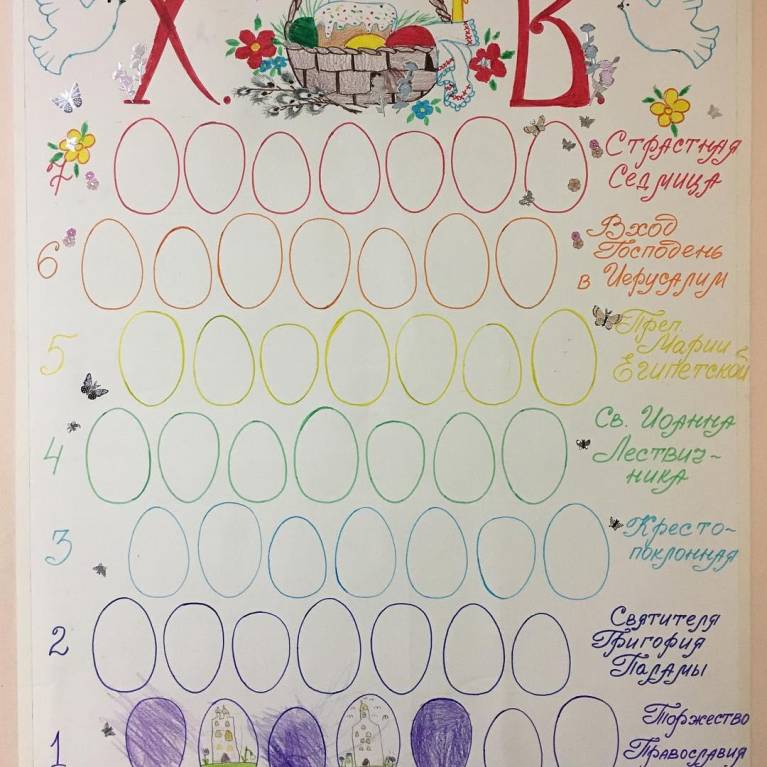 Х. В.
7 Страстная
Седмица
6 Вход
Господень
в Иерусалим
5 Преп.
Марии
Египетской
4 Св. Иоанна
Лествич-
ника
3 Кресто-
поклонная
2 Святителя
Григория
Паламы
1 Торжество
Православия